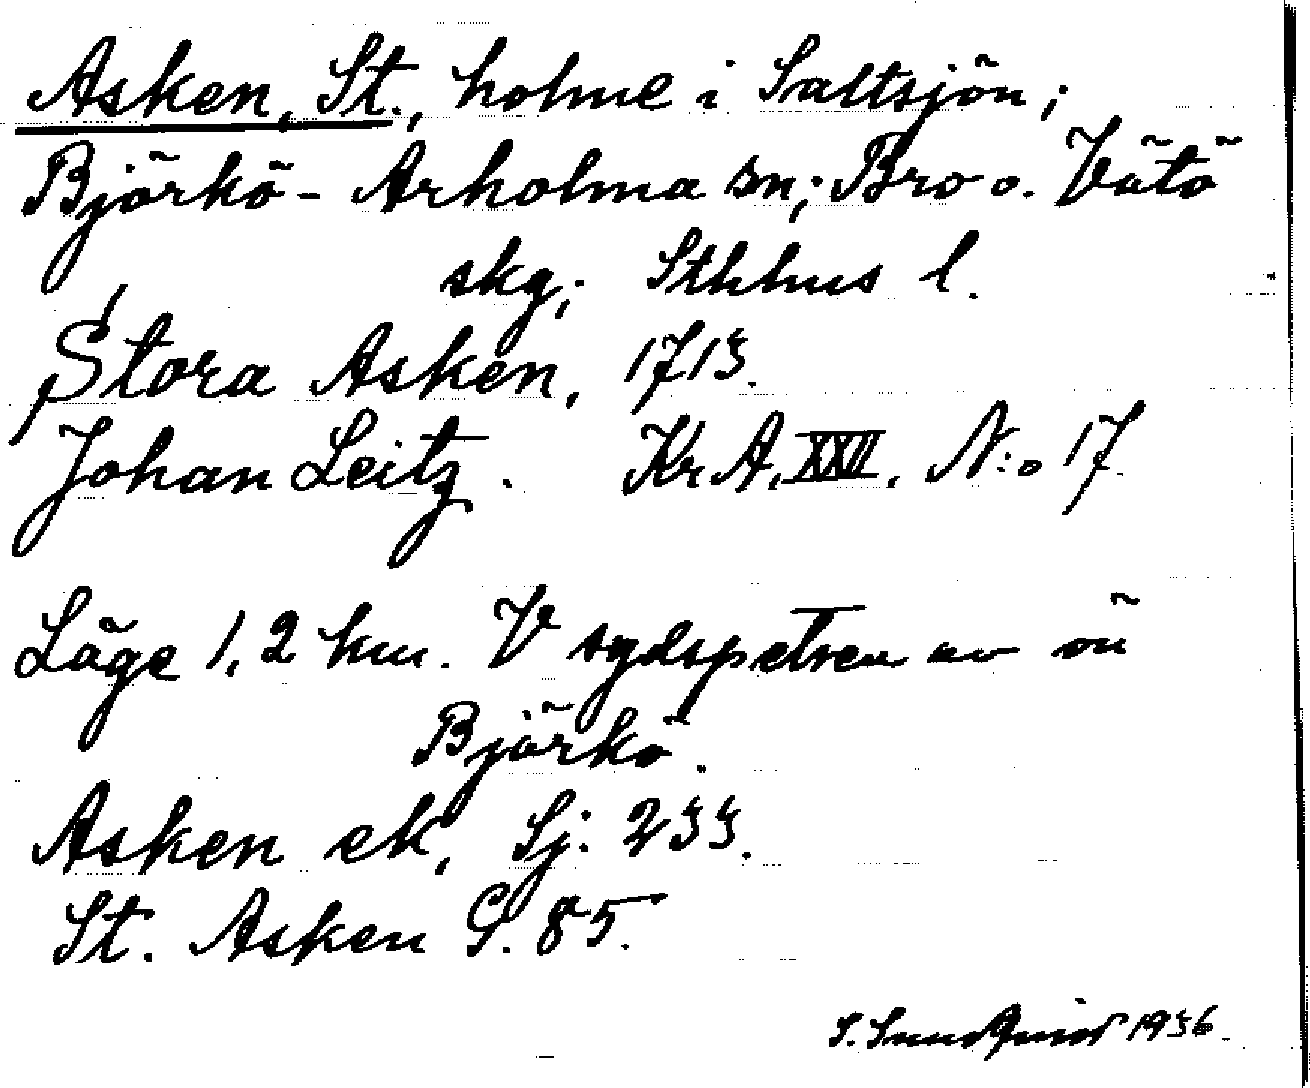 Asken, St., holme i Saltsjön;
Björkö - Arholma sn; Bro o. Vätö
skg; Sthlms l.
Stora Asken, 1713.
Johan Leitz. Kr A. XXII. N:o 17.
Läge 1,2 km. V sydspetsen av ön
Björkö.
Asken ek, Sj: 233.
St. Asken G. 85.
S. Sundquist 1936.